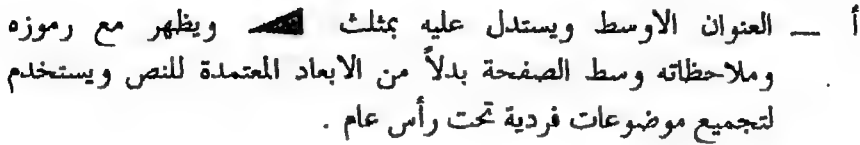 أ — العنوان الاوسط ويستدل عليه بمثلث ويظهر مع رموزه
وملاحظاته وسط الصفحة بدلاً من الابعاد المعتمدة للنص ويستخدم
لتجميع موضوعات فردية تحت رأس عام .